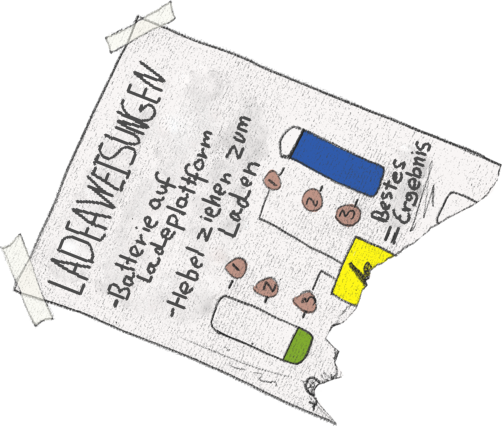 LADEAWEISUNGEN
-Batterie auf
Ladeplattform
-Hebel ziehen zum
Laden
1
2
3
Bestes
= Ergebnis
1
2
3